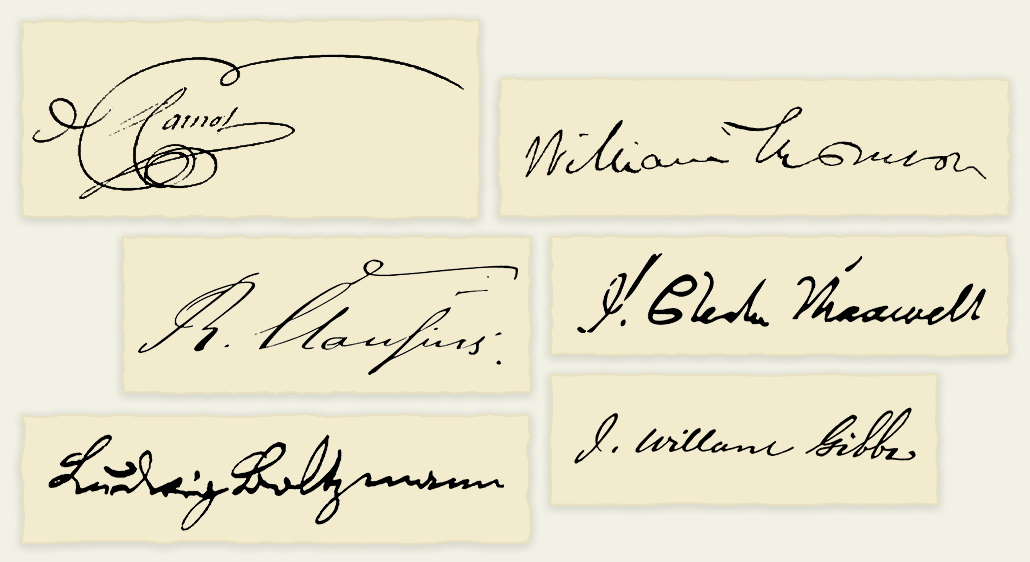 Carnot
William Thomson
R. Clausius.
J. Clerk Maxwell
Ludwig Boltzmann
J. Willard Gibbs